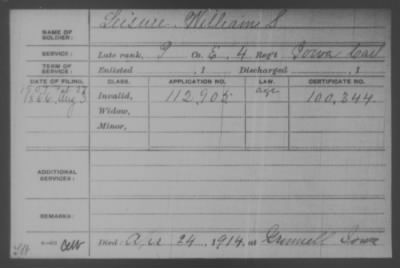 NAME OF SOLDIER: Leisure, William S
SERVICE: Late rank, P Co. E, 4 Reg't Iowa Cav
TERM OF SERVICE: Enlisted , 1 Discharged , 1
DATE OF FILING. CLASS. APPLICATION NO. LAW. CERTIFICATE NO.
1907
1866 Aug 3 Invalid, 112,905 age 100,344
Widow,
Minor,
ADDITIONAL SERVICES:
REMARKS:
Died: Apr 24, 1914, at Grinnell Iowa